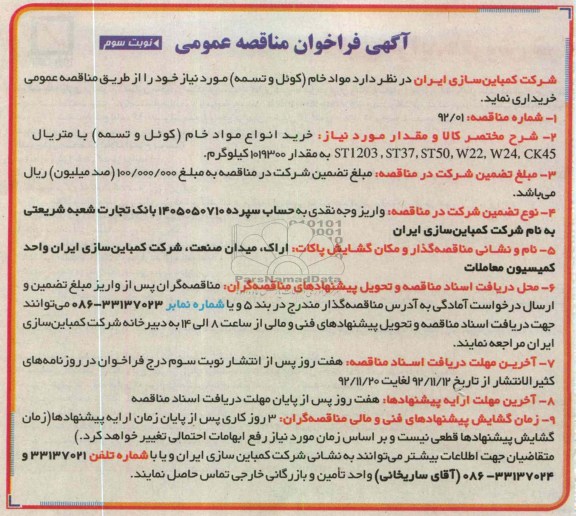 آگهی فراخوان مناقصه عمومی
نوبت سوم
شرکت کمباین‌سازی ایران در نظر دارد مواد خام (کوئل و تسمه) مورد نیاز خود را از طریق مناقصه عمومی
خریداری نماید.
۱- شماره مناقصه: ۹۲/۰۱
۲- شرح مختصر کالا و مقدار مورد نیاز: خرید انواع مواد خام (کوئل و تسمه) با متریال
ST1203 , ST37, ST50, W22, W24, CK45 به مقدار ۱۰۱۹۳۰۰ کیلوگرم.
۳- مبلغ تضمین شرکت در مناقصه: مبلغ تضمین شرکت در مناقصه به مبلغ ۱۰۰/۰۰۰/۰۰۰ (صد میلیون) ریال
می‌باشد.
۴- نوع تضمین شرکت در مناقصه: واریز وجه نقدی به حساب سپرده ۱۴۰۵۰۵۰۷۱۰ بانک تجارت شعبه شریعتی
به نام شرکت کمباین‌سازی ایران
۵- نام و نشانی مناقصه‌گذار و مکان گشایش پاکات: اراک، میدان صنعت، شرکت کمباین‌سازی ایران واحد
ParsNamadData
کمیسیون معاملات
۶- محل دریافت اسناد مناقصه و تحویل پیشنهادهای مناقصه‌گران: مناقصه‌گران پس از واریز مبلغ تضمین و
ارسال درخواست آمادگی به آدرس مناقصه‌گذار مندرج در بند ۵ و یا شماره نمابر ۳۳۱۳۷۰۲۳-۰۸۶ می‌توانند
جهت دریافت اسناد مناقصه و تحویل پیشنهادهای فنی و مالی از ساعت ۸ الی ۱۴ به دبیرخانه شرکت کمباین‌سازی
ایران مراجعه نمایند.
۷- آخرین مهلت دریافت اسناد مناقصه: هفت روز پس از انتشار نوبت سوم درج فراخوان در روزنامه‌های
کثیرالانتشار از تاریخ ۹۲/۱۱/۱۲ لغایت ۹۲/۱۱/۲۰
۸- آخرین مهلت ارایه پیشنهادها: هفت روز پس از پایان مهلت دریافت اسناد مناقصه
۹- زمان گشایش پیشنهادهای فنی و مالی مناقصه‌گران: ۳ روز کاری پس از پایان زمان ارایه پیشنهادها(زمان
گشایش پیشنهادها قطعی نیست و بر اساس زمان مورد نیاز رفع ابهامات احتمالی تغییر خواهد کرد.)
متقاضیان جهت اطلاعات بیشتر می‌توانند به نشانی شرکت کمباین سازی ایران و یا با شماره تلفن ۳۳۱۳۷۰۲۱ و
۳۳۱۳۷۰۲۴-۰۸۶ (آقای ساریخانی) واحد تأمین و بازرگانی خارجی تماس حاصل نمایند.